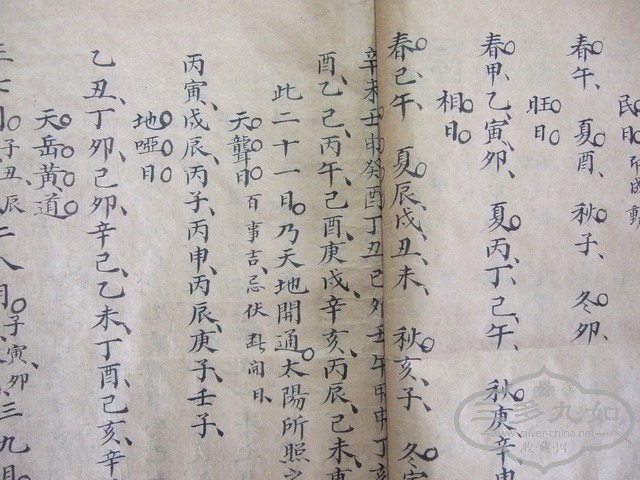 民日
春午、夏酉、秋子、冬卯、
旺日
春甲、乙、寅、卯、夏丙、丁、己、午、秋庚、辛、申
相日
春己、午、夏辰、戌、丑、未、秋亥、子、冬寅
辛未壬申癸酉丁丑己卯壬午甲申丁亥
酉、乙己、丙午、己酉庚戌、辛亥、丙辰、己未、庚
此二十一日。乃天地開通。太陽所照之
天聾日百事吉、忌伏
丙寅、戊辰、丙子、丙申、丙辰、庚子、壬子、
地啞日
乙丑、丁卯、己卯、辛己、乙未、丁酉、己亥、辛
天岳黃道
正七月。子丑、辰二八月。子寅、卯三九月
三多九如
www.silver-china.net
收藏网